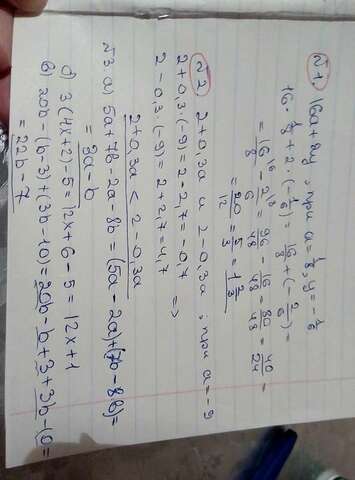 №1 16a+2y, при a=1/8, y=-1/6
16·1/8+2·(-1/6)=16/8+(-2/6)=
=16/8-2/6=96/48-16/48=80/48=40/24=
=20/12=5/3=1 2/3
№2 2+0,3a и 2-0,3a, при a=-9
2+0,3·(-9)=2-2,7=-0,7
2-0,3·(-9)=2+2,7=4,7 =>
2+0,3a < 2-0,3a
№3 а) 5a+7b-2a-8b=(5a-2a)+(7b-8b)=
=3a-b
б) 3(4x+2)-5=12x+6-5=12x+1
в) 20b-(b-3)+(3b-10)=20b-b+3+3b-10=
=22b-7